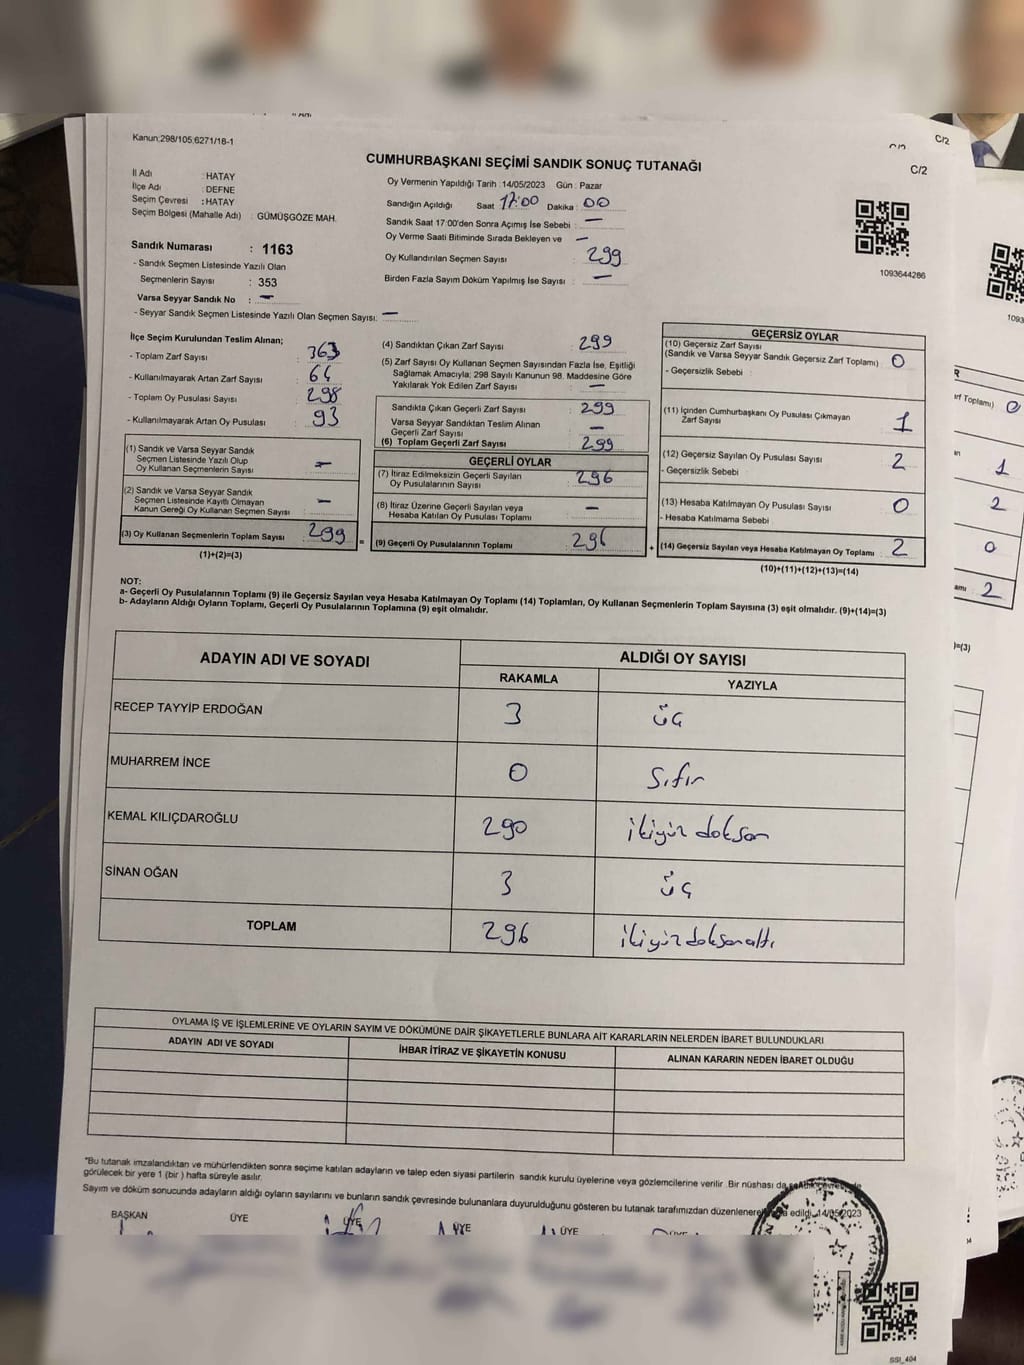 Kanun:298/105:6271/18-1
C/2
C/2
CUMHURBAŞKANI SEÇİMİ SANDIK SONUÇ TUTANAĞI
İl Adı : HATAY
İlçe Adı : DEFNE
Seçim Çevresi : HATAY
Seçim Bölgesi (Mahalle Adı) : GÜMÜŞGÖZE MAH.
Sandık Numarası : 1163
- Sandık Seçmen Listesinde Yazılı Olan
Seçmenlerin Sayısı : 353
Varsa Seyyar Sandık No : -
- Seyyar Sandık Seçmen Listesinde Yazılı Olan Seçmen Sayısı: -
Oy Vermenin Yapıldığı Tarih :14/05/2023 Gün : Pazar
Sandığın Açıldığı Saat 17:00 Dakika : 00
Sandık Saat 17:00'den Sonra Açımış İse Sebebi : -
Oy Verme Saati Bitiminde Sırada Bekleyen ve -
Oy Kullandırılan Seçmen Sayısı : 299
Birden Fazla Sayım Döküm Yapılmış İse Sayısı : -
1093644286
İlçe Seçim Kurulundan Teslim Alınan;
- Toplam Zarf Sayısı : 363
- Kullanılmayarak Artan Zarf Sayısı : 64
- Toplam Oy Pusulası Sayısı : 298
- Kullanılmayarak Artan Oy Pusulası : 93
(1) Sandık ve Varsa Seyyar Sandık
Seçmen Listesinde Yazılı Olup
Oy Kullanan Seçmenlerin Sayısı : -
(2) Sandık ve Varsa Seyyar Sandık
Seçmen Listesinde Kayıtlı Olmayan
Kanun Gereği Oy Kullanan Seçmen Sayısı : -
(3) Oy Kullanan Seçmenlerin Toplam Sayısı : 299
(1)+(2)=(3)
(4) Sandıktan Çıkan Zarf Sayısı : 299
(5) Zarf Sayısı Oy Kullanan Seçmen Sayısından Fazla İse, Eşitliği
Sağlamak Amacıyla; 298 Sayılı Kanunun 98. Maddesine Göre
Yakılarak Yok Edilen Zarf Sayısı : -
Sandıkta Çıkan Geçerli Zarf Sayısı : 299
Varsa Seyyar Sandıktan Teslim Alınan
Geçerli Zarf Sayısı : -
(6) Toplam Geçerli Zarf Sayısı : 299
GEÇERLİ OYLAR
(7) İtiraz Edilmeksizin Geçerli Sayılan
Oy Pusulalarının Sayısı : 296
(8) İtiraz Üzerine Geçerli Sayılan veya
Hesaba Katılan Oy Pusulası Toplamı : -
= (9) Geçerli Oy Pusulalarının Toplamı : 296
GEÇERSİZ OYLAR
(10) Geçersiz Zarf Sayısı
(Sandık ve Varsa Seyyar Sandık Geçersiz Zarf Toplamı) : 0
- Geçersizlik Sebebi :
(11) İçinden Cumhurbaşkanı Oy Pusulası Çıkmayan
Zarf Sayısı : 1
(12) Geçersiz Sayılan Oy Pusulası Sayısı : 2
- Geçersizlik Sebebi :
(13) Hesaba Katılmayan Oy Pusulası Sayısı : 0
- Hesaba Katılmama Sebebi :
+ (14) Geçersiz Sayılan veya Hesaba Katılmayan Oy Toplamı : 2
(10)+(11)+(12)+(13)=(14)
NOT:
a- Geçerli Oy Pusulalarının Toplamı (9) ile Geçersiz Sayılan veya Hesaba Katılmayan Oy Toplamı (14) Toplamları, Oy Kullanan Seçmenlerin Toplam Sayısına (3) eşit olmalıdır. (9)+(14)=(3)
b- Adayların Aldığı Oyların Toplamı, Geçerli Oy Pusulalarının Toplamına (9) eşit olmalıdır.
ADAYIN ADI VE SOYADI ALDIĞI OY SAYISI
RAKAMLA YAZIYLA
RECEP TAYYİP ERDOĞAN 3 üç
MUHARREM İNCE 0 sıfır
KEMAL KILIÇDAROĞLU 290 ikiyüz doksan
SİNAN OĞAN 3 üç
TOPLAM 296 ikiyüz doksanaltı
OYLAMA İŞ VE İŞLEMLERİNE VE OYLARIN SAYIM VE DÖKÜMÜNE DAİR ŞİKAYETLERLE BUNLARA AİT KARARLARIN NELERDEN İBARET BULUNDUKLARI
ADAYIN ADI VE SOYADI İHBAR İTİRAZ VE ŞİKAYETİN KONUSU ALINAN KARARIN NEDEN İBARET OLDUĞU
*Bu tutanak imzalandıktan ve mühürlendikten sonra seçime katılan adayların ve talep eden siyasi partilerin sandık kurulu üyelerine veya gözlemcilerine verilir. Bir nüshası da
görülecek bir yere 1 (bir ) hafta süreyle asılır.
Sayım ve döküm sonucunda adayların aldığı oyların sayılarını ve bunların sandık çevresinde bulunanlara duyurulduğunu gösteren bu tutanak tarafımızdan düzenlenerek edildi. 14/05/2023
BAŞKAN ÜYE ÜYE ÜYE ÜYE ÜYE
SSI_404
1093
Toplamı) 0
1
2
0
2
)=(3)